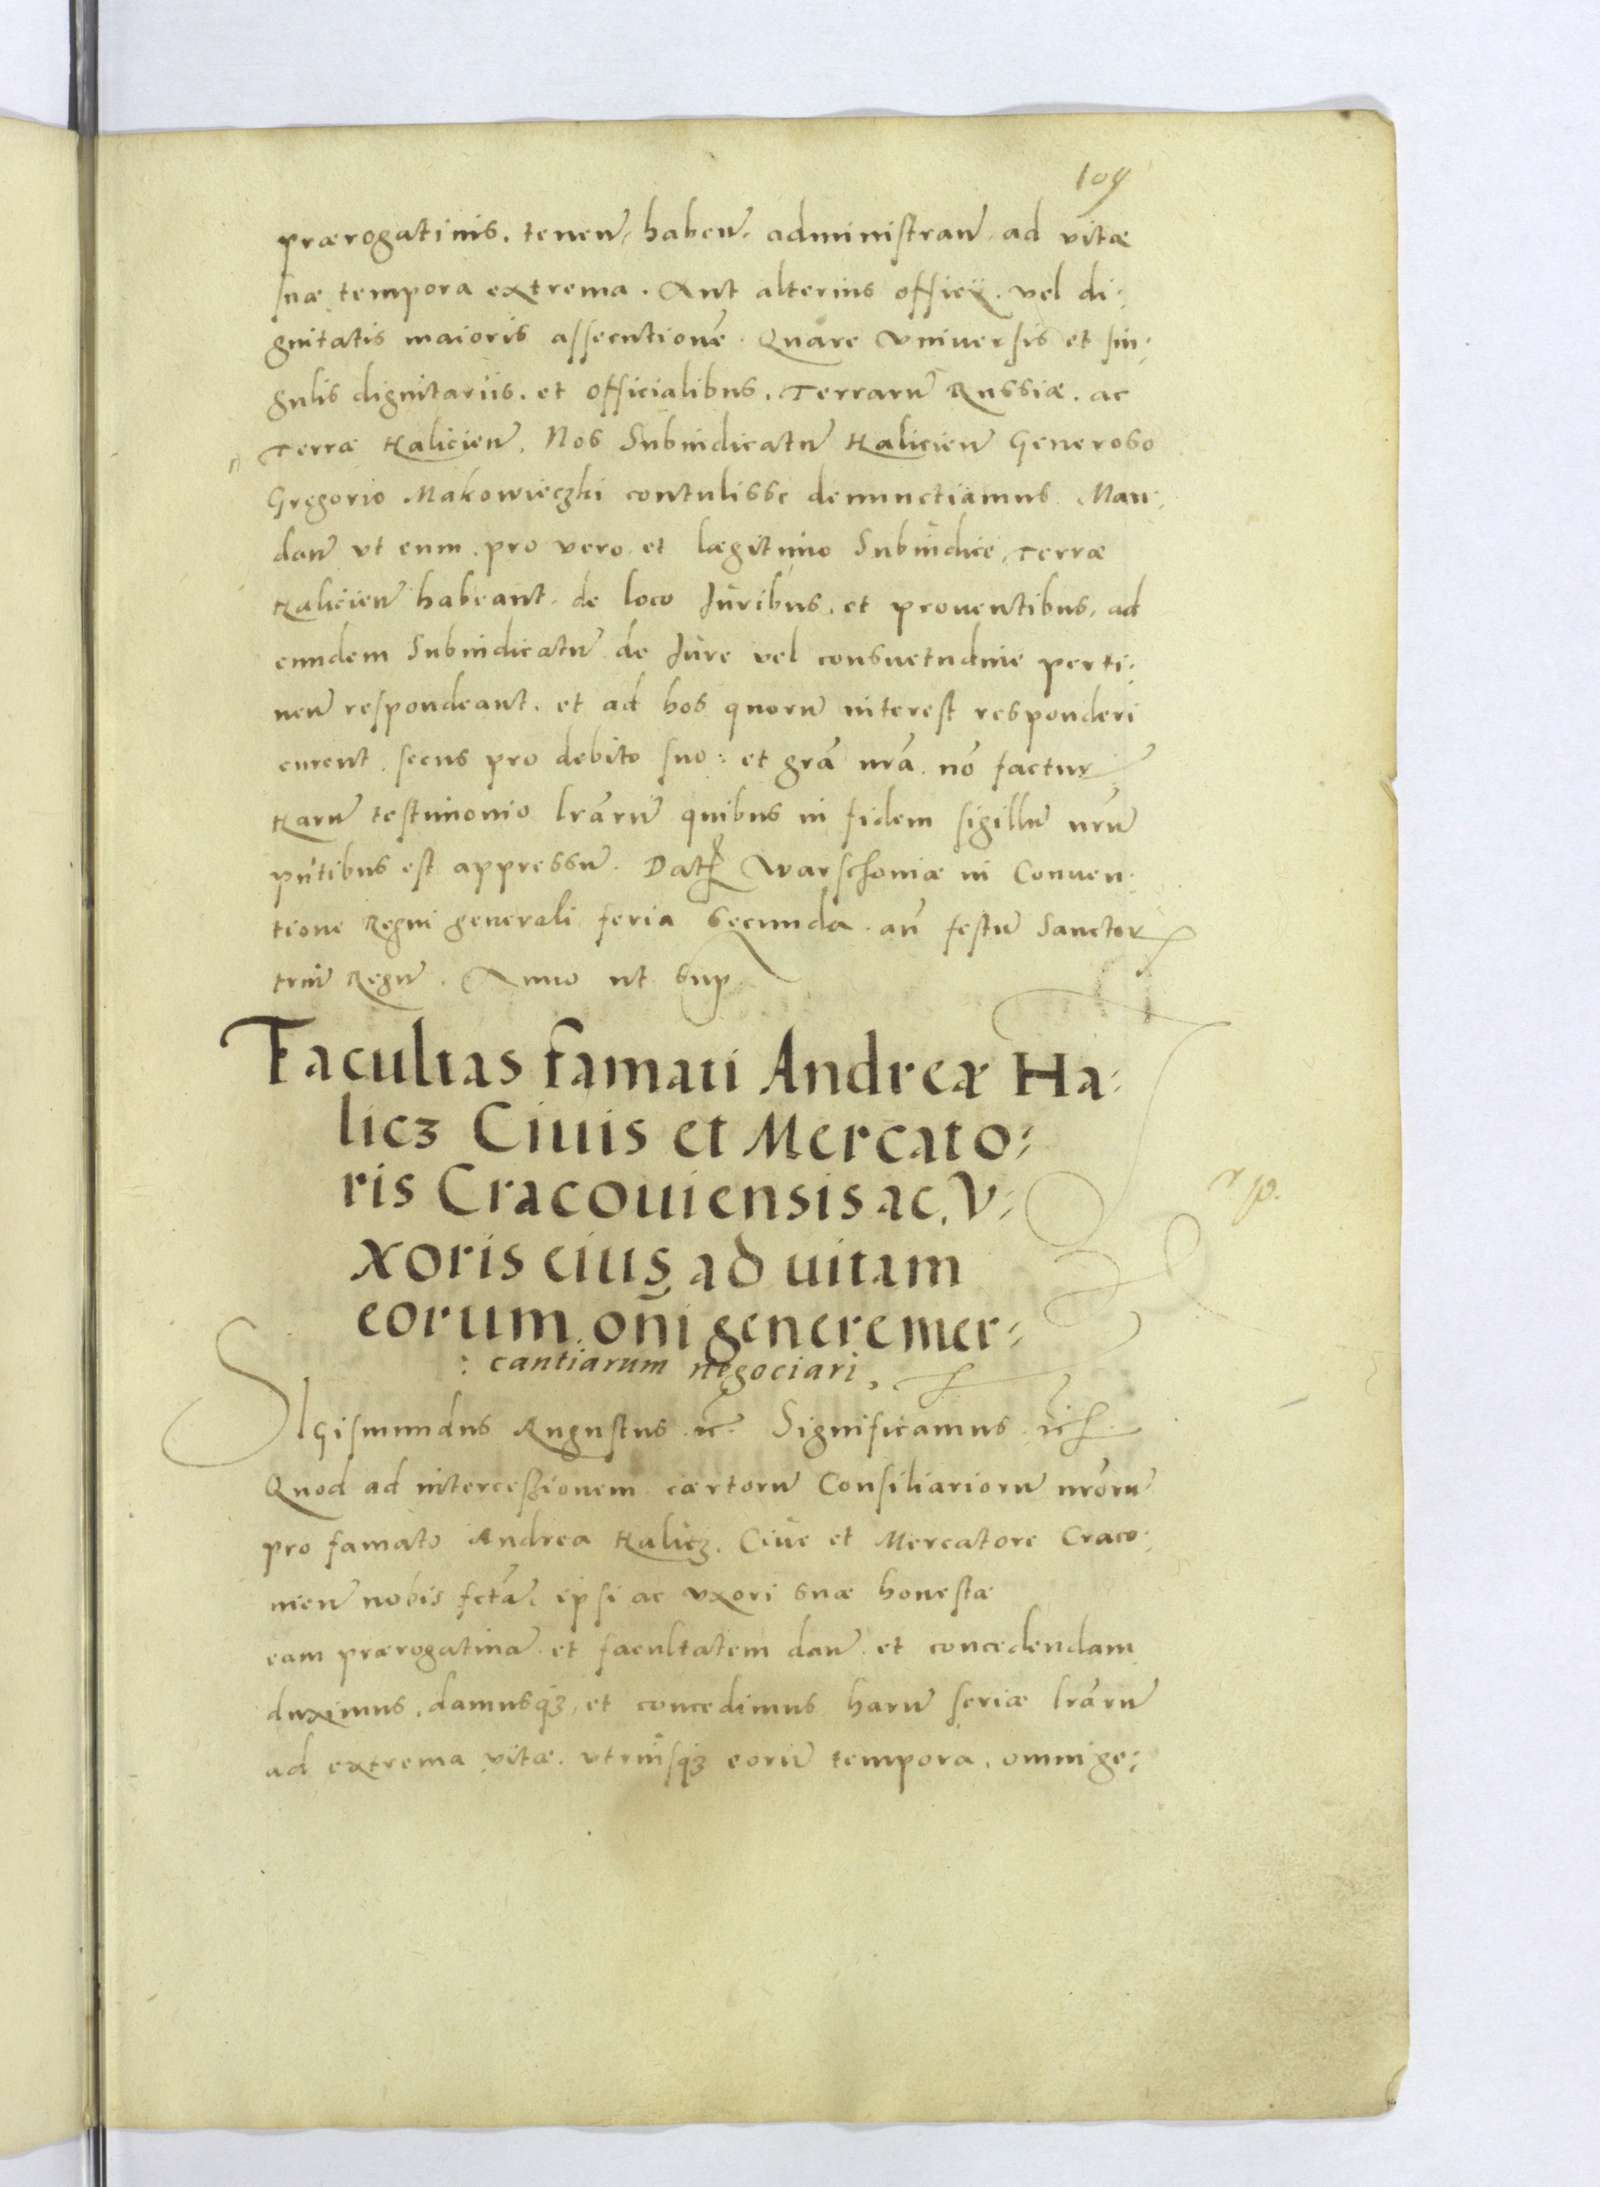 109
prærogatiuis. tenen̄. haben̄. administran̄. ad vitæ
suæ tempora extrema. Aut alterius officij. vel di:
gnitatis maioris assecutionē. Quare Vniuersis et sin:
gulis dignitariis. et officialibus. Terrarū Russiæ. ac
Terræ Halicien̄. Nos Subiudicatū Halicien̄ Generoso
Gregorio Makowieczki contulisse denunctiamus. Man:
dan̄ vt eum pro vero et lægitimo Subiudice Terræ
Halicien̄ habeant. de loco Juribus. et prouentibus. ad
eundem Subiudicatū de Jure vel consuetudine perti:
nen̄ respondeant. et ad hos quorū interest responderi
curent. secus pro debito suo: et grā nrā. nō factur
Harū testimonio lrārū quibus in fidem sigillū nrū
pn̄tibus est appressū. Dat Warschoniæ in Conuen:
tione Regni generali feria Secunda an̄ festū Sanctor
triū Regū. Anno ut sup
Facultas famati Andreæ Ha:
licz Ciuis et Mercato:
ris Cracouiensis ac. V:
xoris eius ad uitam
eorum. oñi genere mer:
: cantiarum negociari,
SIGismundus Augustus. &c. Significamus. &c.
Quod ad intercessionem cærtorū Consiliariorū nrōrū
pro famato Andrea Halicz. Ciue et Mercatore Craco:
uien̄ nobis fctā. ipsi ac vxori suæ honestæ
eam prærogatiuā et facultatem dan̄ et concedendam
duximus. damusqȝ, et concedimus harū seriæ lrārū
ad extrema vitæ. vtriusqȝ eorū tempora. omni ge: